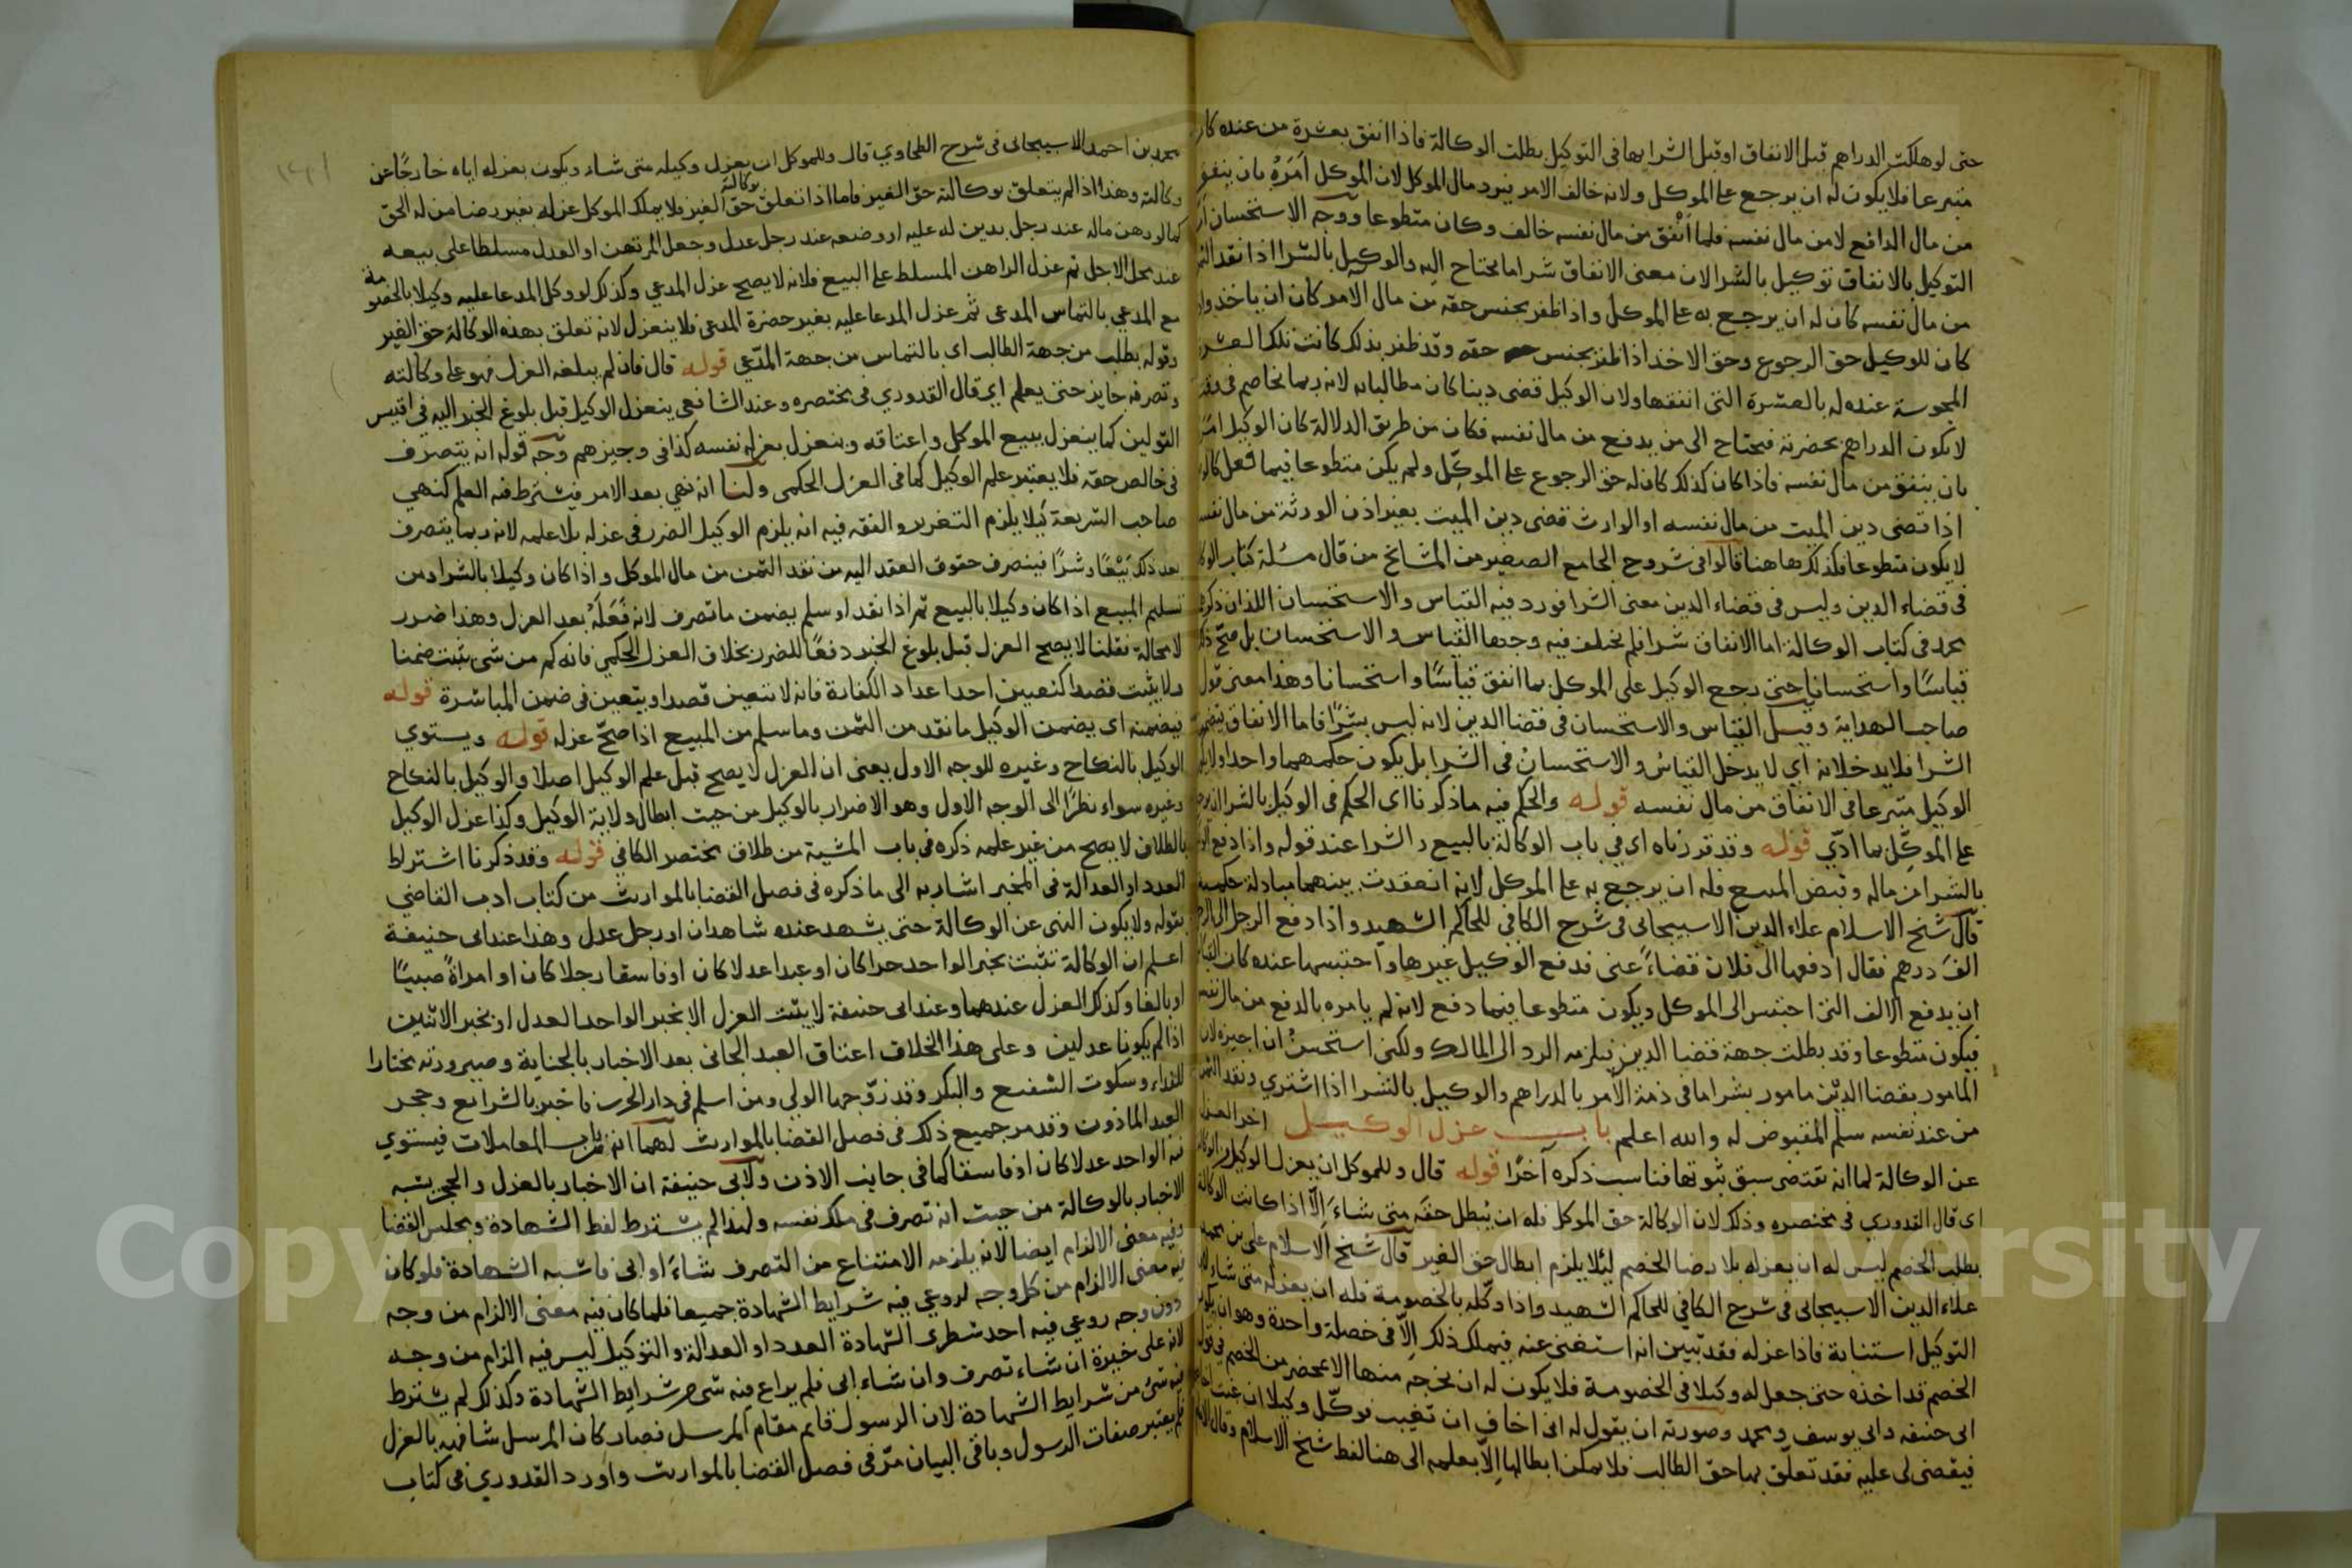 حتى لو هلكت الدراهم قبل الانفاق او قبل الشرا بها فى التوكيل بطلت الوكالة فاذا انفق بعشرة من عنده كان
متبرعا فلا يكون له ان يرجع على الموكل ولانه خالف الامر فيرد مال الموكل لان الموكل اَمَرَهُ بان ينفق
من مال الدافع لا من مال نفسه فلما اَنْفَق من مال نفسه خالف وكان متطوعا ووجه الاستحسان ان
التوكيل بالانفاق توكيل بالشرا لان معنى الانفاق شرا ما يحتاج اليه والوكيل بالشرا اذا نقد الثمن
من مال نفسه كان له ان يرجع به على الموكل واذا ظفر بجنس حقه من مال الامر كان ان ياخذ
كان للوكيل حق الرجوع وحق الاخذ اذا ظفر بجنس حقه وقد ظفر بذلك كانت تلك العشرة
المحبوسة عنده له بالعشرة التى انفقها ولان الوكيل قضى دينا كان مطالبا به لانه ربما يخاصم فى وقت
لا يكون الدراهم بحضرته فيحتاج الى من يدفع من مال نفسه فكان من طريق الدلالة كان الوكيل
بان ينفق من مال نفسه فاذا كان كذلك كان له حق الرجوع على الموكّل ولم يكن متطوعا فيما فعل كالوصى
اذا قضى دين الميت من مال نفسه او الوارث قضى دين الميت بغير اذن الورثة من مال نفسه
لا يكون متطوعا فكذلك هاهنا قالوا فى شروح الجامع الصغير من المشايخ من قال مسئلة كتاب الوكالة
فى قضاء الدين وليس فى قضاء الدين معنى الشرا فورد فيه القياس والاستحسان اللذان ذكرهما
محمد فى كتاب الوكالة اما الانفاق شرا فلم يختلف فيه وجها القياس والاستحسان بل صح
قياسًا واستحسانا حتى رجع الوكيل على الموكل بما انفق قياسًا واستحسانا وهذا معنى قول
صاحب الهداية وقيل القياس والاستحسان فى قضا الدين لانه ليس بشرًا فاما الانفاق يتضمن
الشرا فلا يدخلانه اى لا يدخل القياسُ والاستحسانُ فى الشرا بل يكون حكمهما واحدا ولا يكون
الوكيل متبرعا فى الانفاق من مال نفسه قوله والحكم فيه ما ذكرنا اى الحكم فى الوكيل بالشرا
على الموكّل بما ادّى قوله وقد قررناه اى فى باب الوكالة بالبيع والشرا عند قوله واذا دفع الوكيل
بالشرا من ماله وقبض المبيع فله ان يرجع به على الموكل لانه انعقدت بينهما مبادلة حكمية
قال شيخ الاسلام علاء الدين الاسبيجابى فى شرح الكافى للحاكم الشهيد واذا دفع الرجل الى
الفَ درهم فقال ادفعها الى فلان قضاءً عنى فدفع الوكيل غيرها واحتبسها عنده كان القياس
ان يدفع الالف التى احتبس الى الموكل ويكون متطوعا فيما دفع لانه لم يامره بالدفع من مال نفسه
فيكون متطوعا وقد بطلت جهة قضا الدين فيلزمه الرد الى المالك ولكنى استحسنُ ان اجيزه لان
المامور بقضا الدين مامور بشرا ما فى ذمة الامر بالدراهم والوكيل بالشرا اذا اشترى ونقد الثمن
من عند نفسه سلم المقبوض له والله اعلم باب عزل الوكيل اخر العزل
عن الوكالة لما انه تقتضى سبق ثبوتها فناسب ذكره آخرًا قوله قال وللموكل ان يعزل الوكيل عن الوكالة
اى قال القدورى فى مختصره وذلك لان الوكالة حق الموكل فله ان يُبطل حقَه متى شاءَ اِلّا اذا كانت الوكالة
بطلب الخصم ليس له ان يعزله بلا رضا الخصم لئلا يلزم ابطال حق الغير قال شيخ الاسلام على بن محمد
علاء الدين الاسبيجابى فى شرح الكافى للحاكم الشهيد واذا وكّله بالخصومة فله ان يعزله متى شاء لان
التوكيل استنابة فاذا عزله فقد تبيين انه استغنى عنه فيملك ذلك اِلّا فى خصلة واحدة وهو ان يكون
الخصم قد اخذه حتى جعل له وكيلا فى الخصومة فلا يكون له ان يخرجه منها الا بمحضر من الخصم فى قول
ابى حنيفه وابى يوسف ومحمد وصورته ان يقول له انى اخاف ان تغيب فوكّل وكيلا ان غبت
فيقضى لى عليه فقد تعلّق بها حق الطالب فلا يمكن ابطالها اِلّا بعلمه الى هنا لفظ شيخ الاسلام وقال
محمد بن احمد الاسبيجابى فى شرح الطحاوى قال وللموكل ان يعزل وكيله متى شاء ويكون بعزله اياه خارجًا عن
وكالته وهذا اذا لم يتعلق بوكالته حق الغير فاما اذا تعلق بوكالته حق الغير فلا يملك الموكل عزله بغير رضا من له الحق
كما لو رهن ماله عند رجل بدين له عليه او وضعه عند رجل عدل وجعل المرتهن او العدل مسلطا على بيعه
عند محل الاجل ثم عزل الراهن المسلط على البيع فلانه لا يصح عزل المدعى وكذلك لو وكل المدعا عليه وكيلا بالخصومة
مع المدعى بالتماس المدعى ثم عزل المدعا عليه بغير حضرة المدعى فلا ينعزل لانه تعلق بهذه الوكالة حق الغير
وقوله بطلب من جهة الطالب اى بالتماس من جهة المدّعى قوله قال فان لم يبلغه العزل فهو على وكالته
وتصرفه جايز حتى يعلم اى قال القدورى فى مختصره وعند الشافعى ينعزل الوكيل قبل بلوغ الخبر اليه فى اقيس
القولين كما ينعزل ببيع الموكل واعتاقه وينعزل بعزله نفسه كذا فى وجيزهم وجه قوله انه يتصرف
فى خالص حقه فلا يعتبر علم الوكيل كما فى العزل الحكمى ولنا انه نهى بعد الامر فيشترط فيه العلم كنهى
صاحب الشريعة كيلا يلزم التغرير والفقه فيه انه يلزم الوكيل الضرر فى عزله بلا علمه لانه ربما يتصرف
بعد ذلك بَيْعًا وشرًا فينصرف حقوق العقد اليه من نقد الثمن من مال الموكل واذا كان وكيلا بالشرا ومن
تسليم المبيع اذا كان وكيلا بالبيع ثم اذا نقد او سلم يضمن ما تصرف لانه فَعَلَهُ بعد العزل وهذا ضرر
لا محالة فقلنا لا يصح العزل قبل بلوغ الخبر دفعًا للضرر بخلاف العزل الحكمى فانه كم من شى يثبت ضمنا
ولا يثبت قصدا كتعيين احدا عداد الكفارة فانه لا تتعين قصدا ويتعين فى ضمن المباشرة قوله
فيضمنه اى يضمن الوكيل ما نقد من الثمن وما سلم من المبيع اذا صحّ عزله قوله ويستوى
الوكيل بالنكاح وغيره للوجه الاول يعنى ان العزل لا يصح قبل علم الوكيل اصلا والوكيل بالنكاح
وغيره سواء نظرًا الى الوجه الاول وهو الاضرار بالوكيل من حيث ابطال ولاية الوكيل وكذا عزل الوكيل
بالطلاق لا يصح من غير علمه ذكره فى باب المشية من طلاق مختصر الكافى قوله وقد ذكرنا اشتراط
العدد او العدالة فى المخبر اشار به الى ما ذكره فى فصل القضا بالمواريث من كتاب ادب القاضى
بقوله ولا يكون النهى عن الوكالة حتى يشهد عنده شاهدان او رجل عدل وهذا عند ابى حنيفة
اعلم ان الوكالة تثبت بخبر الواحد حرا كان او عبدا عدلا كان او فاسقا رجلا كان او امراةً صبيًا
او بالغا وكذلك العزل عندهما وعند ابى حنيفة لا يثبت العزل الا بخبر الواحد العدل او بخبر الاثنين
اذا لم يكونا عدلين وعلى هذا الخلاف اعتاق العبد الجانى بعد الاخبار بالجناية وصيرورته مختارا
للفداء وسكوت الشفيع والبكر وقد زوّجها الولى ومن اسلم فى دار الحرب فاخبر بالشرايع وحجر
العبد الماذون وقد مر جميع ذلك فى فصل القضا بالمواريث لهما انه من باب المعاملات فيستوى
فيه الواحد عدلا كان او فاسقا كما فى جانب الاذن ولابى حنيفة ان الاخبار بالعزل والحجر يشبه
الاخبار بالوكالة من حيث انه تصرف فى ملك نفسه ولهذا لم يشترط لفظ الشهادة ومجلس القضا
وفيه معنى الالزام ايضا لانه يلزمه الامتناع من التصرف شاءَ او ابى فاشبه الشهادة فلو كان
فيه معنى الالزام من كل وجه لروعى فيه شرايط الشهادة جميعا فلما كان فيه معنى الالزام من وجه
دون وجه روعى فيه احد شطرى الشهادة العدد او العدالة والتوكيل ليس فيه الزام من وجه
لانه على خيرة ان شاء تصرف وان شاء ابى فلم يراع فيه شى من شرايط الشهادة وكذلك لم يشترط
فيه شئ من شرايط الشهادة لان الرسول قايم مقام المرسل فصار كان المرسل شافهه بالعزل
فلم يعتبر صفات الرسول وباقى البيان مرّ فى فصل القضا بالمواريث واورد القدورى فى كتاب
Copyright © King Saud University